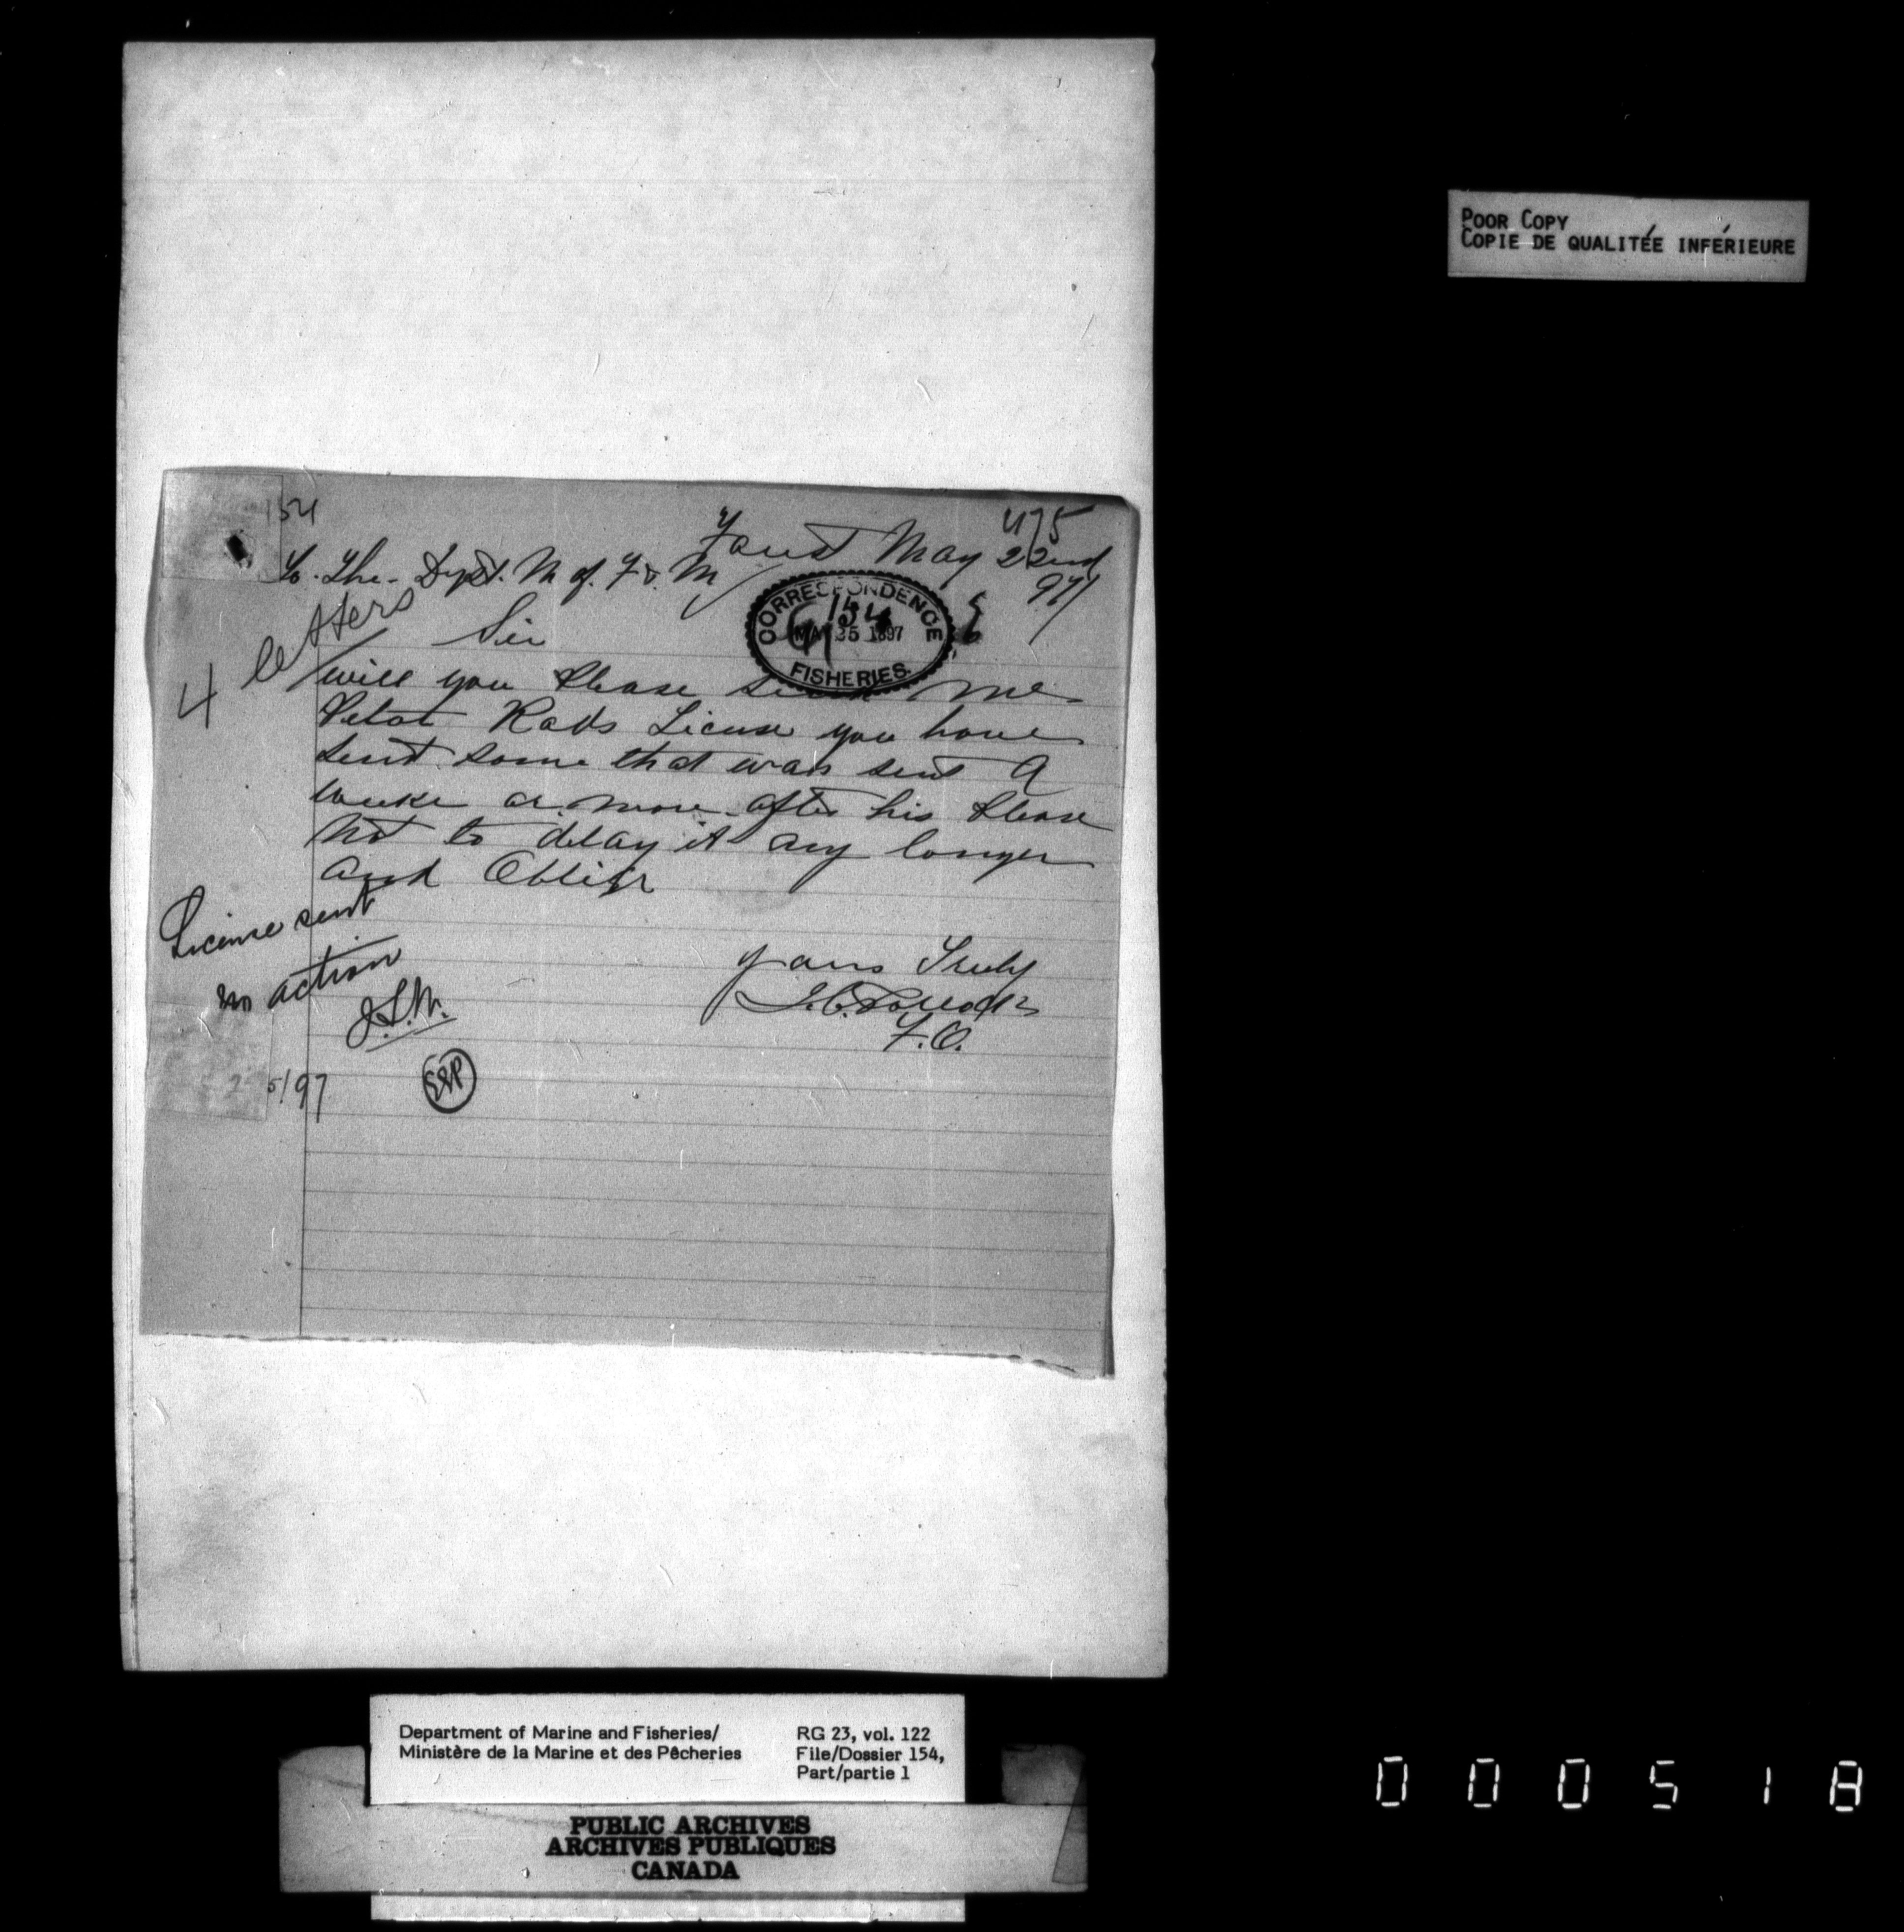 POOR COPY
COPIE DE QUALITÉE INFÉRIEURE
154
475
May 22nd
97/
To. The. Dept. M of. F & M
CORRESPONDENCE
154
MAY 25 1897
FISHERIES
4 letters
Sir
will you Please send me
Peter License you have
sent some that was sent A
weeke or more after his Please
not to delay it any longer
and Oblige
License sent
no action
yours Truly
F.O.
5/97
Department of Marine and Fisheries/
Ministère de la Marine et des Pêcheries
RG 23, vol. 122
File/Dossier 154,
Part/partie 1
PUBLIC ARCHIVES
ARCHIVES PUBLIQUES
CANADA
000518